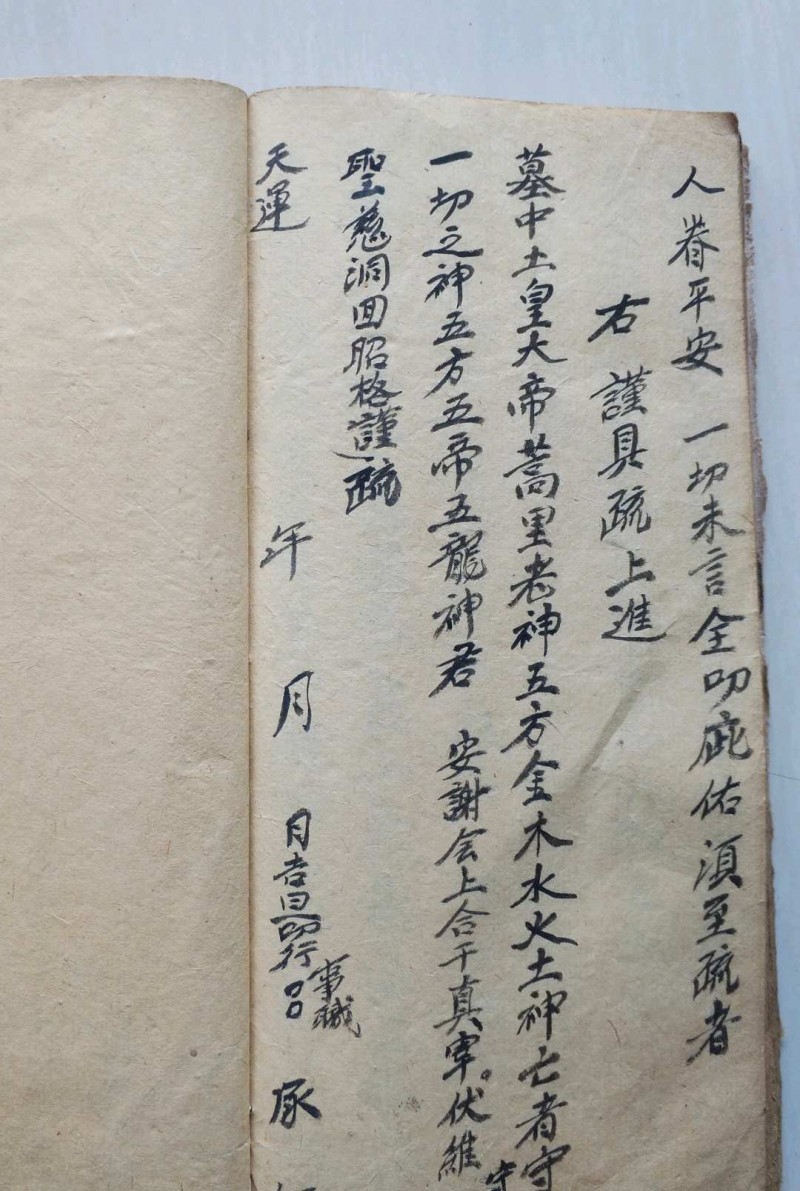 人眷平安 一切未言全叩庇佑須至疏者
右 謹具疏上進
墓中土皇大帝蒿里老神五方金木水火土神亡者守
守
一切之神五方五帝五龍神君 安謝会上合干真宰。伏維
聖慈洞回昭格謹疏
天運 年 月 日吉旦叩行 承
事職